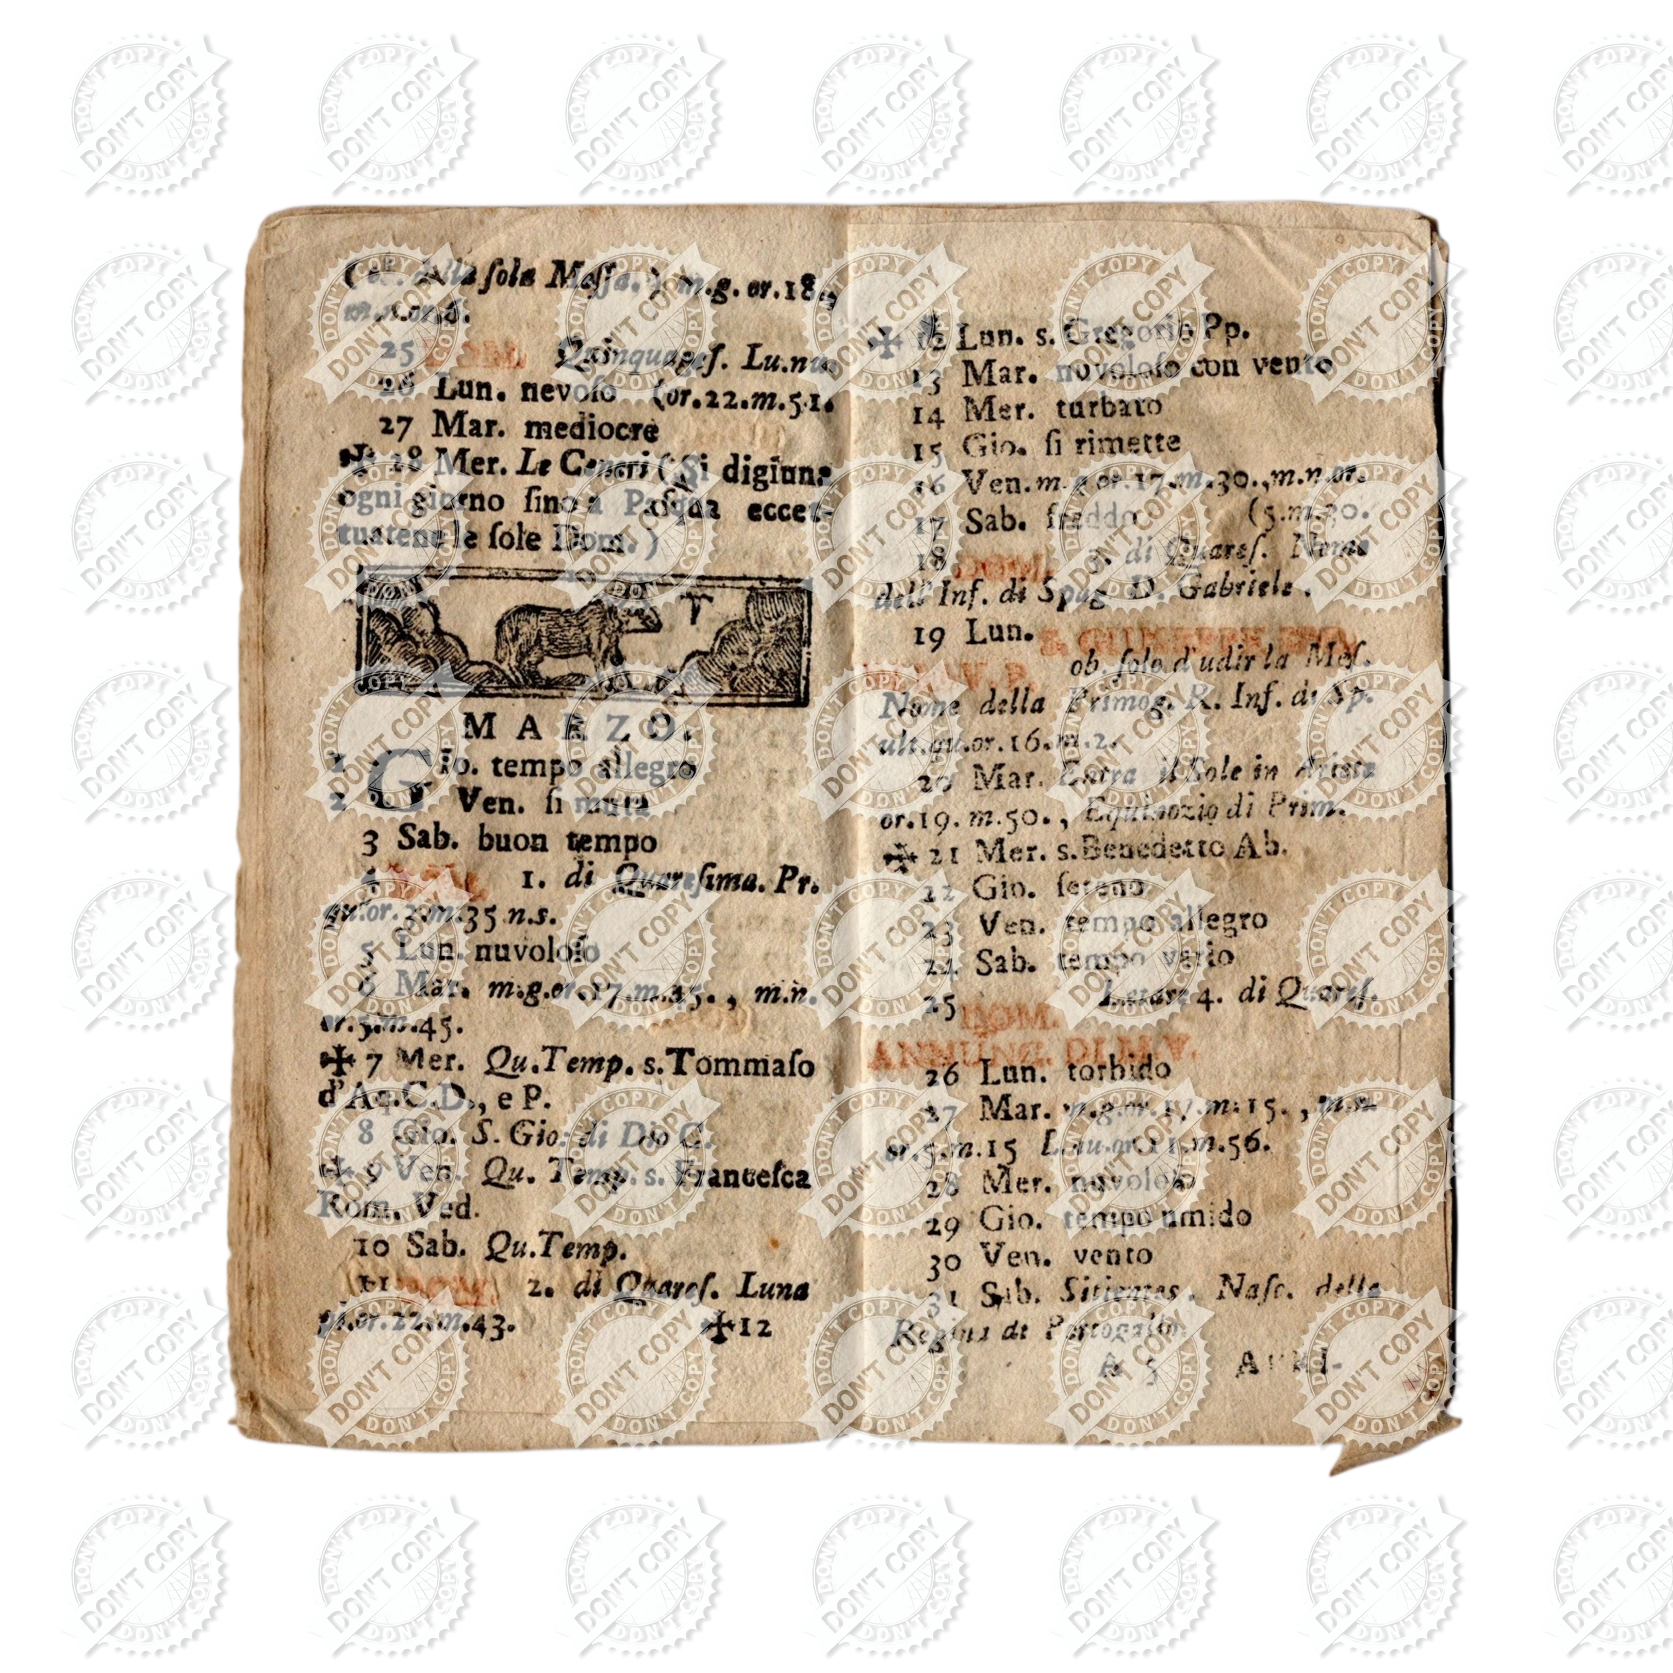 della ſola Meſſa.) m.g.or.18.,
m.n.or.6.
25 DOM. Quinquageſ. Lu.nu.
26 Lun. nevoſo (or.22.m.51.
27 Mar. mediocre
✠ 28 Mer. Le Ceneri (Si digiuna
ogni giorno ſino a Paſqua eccet-
tuatene le ſole Dom.)
♈
MARZO.
1 Gio. tempo allegro
2 Ven. ſi muta
3 Sab. buon tempo
4 DOM. 1. di Quareſima. Pr.
qu.or.3.m.35 n.s.
5 Lun. nuvoloſo
6 Mar. m.g.or.17.m.45., m.n.
or.5.m.45.
✠ 7 Mer. Qu.Temp. s.Tommaſo
d'Aq.C.D., e P.
8 Gio. S. Gio: di Dio C.
✠ 9 Ven. Qu. Temp. s. Franceſca
Rom. Ved.
10 Sab. Qu.Temp.
11 DOM. 2. di Quareſ. Luna
pi.or.22.m.43. ✠12
✠ 12 Lun. s. Gregorio Pp.
13 Mar. nuvoloſo con vento
14 Mer. turbato
15 Gio. ſi rimette
16 Ven. m.g.or.17.m.30., m.n.or.
17 Sab. freddo (5.m.30.
18 DOM. 3. di Quareſ. Nome
dell' Inf. di Spag. D. Gabriele.
19 Lun. S. GIUSEPPE
V. ob. ſolo d'udir la Meſ.
Nome della Primog. R. Inf. di Sp.
ult.qu.or.16.m.2.
20 Mar. Entra il Sole in Ariete
or.19.m.50., Equinozio di Prim.
✠ 21 Mer. s.Benedetto Ab.
22 Gio. ſereno
23 Ven. tempo allegro
24 Sab. tempo vario
25 DOM. Letare 4. di Quareſ.
ANNUNC. DI M.V.
26 Lun. torbido
27 Mar. m.g.or.17.m.15., m.n.
or.5.m.15 L.nu.or.11.m.56.
28 Mer. nuvoloſo
29 Gio. tempo umido
30 Ven. vento
31 Sab. Sitientes. Naſc. della
Regina di Portogallo.
A 5 APRI-
DON'T COPY